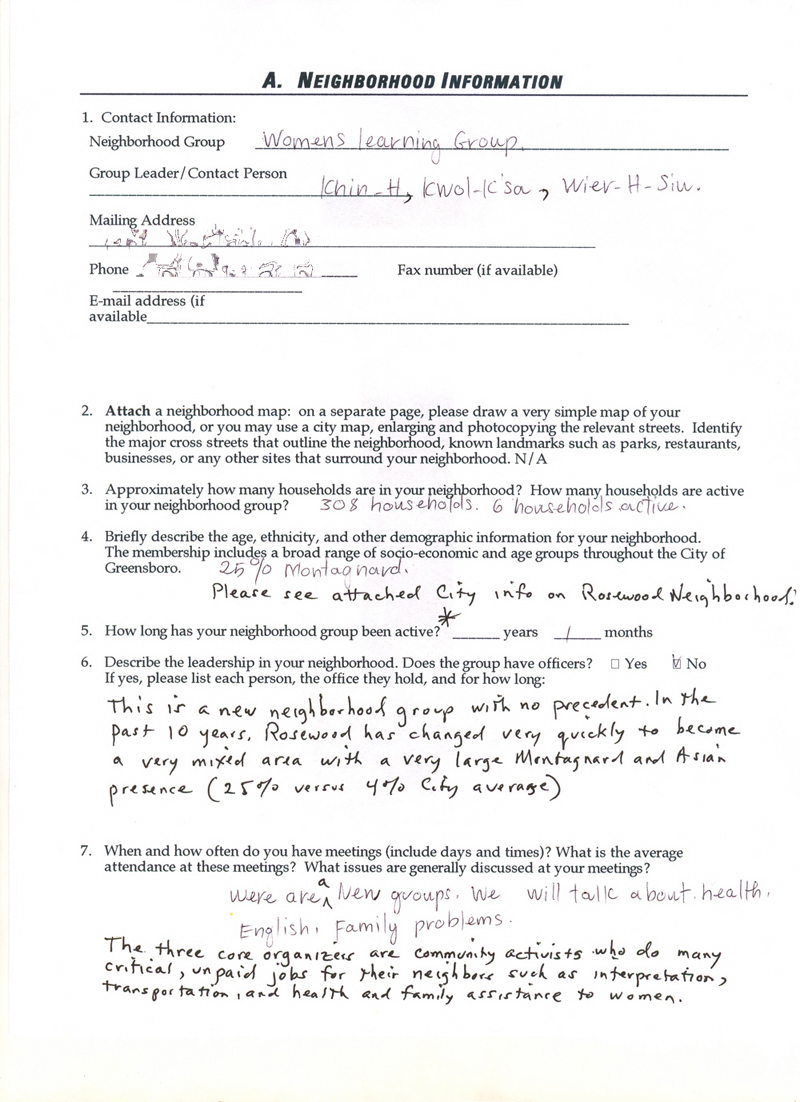 A. NEIGHBORHOOD INFORMATION
1. Contact Information:
Neighborhood Group Womens learning Group
Group Leader/Contact Person
Khin-H, Kwol-K'sa, Wier-H-Siu.
Mailing Address
Phone Fax number (if available)
E-mail address (if
available
2. Attach a neighborhood map: on a separate page, please draw a very simple map of your
neighborhood, or you may use a city map, enlarging and photocopying the relevant streets. Identify
the major cross streets that outline the neighborhood, known landmarks such as parks, restaurants,
businesses, or any other sites that surround your neighborhood. N/A
3. Approximately how many households are in your neighborhood? How many households are active
in your neighborhood group? 308 households. 6 households active.
4. Briefly describe the age, ethnicity, and other demographic information for your neighborhood.
The membership includes a broad range of socio-economic and age groups throughout the City of
Greensboro. 25% Montagnard.
Please see attached City info on Rosewood Neighborhood.
5. How long has your neighborhood group been active? * years 1 months
6. Describe the leadership in your neighborhood. Does the group have officers? ☐ Yes ☑ No
If yes, please list each person, the office they hold, and for how long:
This is a new neighborhood group with no precedent. In the
past 10 years, Rosewood has changed very quickly to become
a very mixed area with a very large Montagnard and Asian
presence (25% versus 4% City average)
7. When and how often do you have meetings (include days and times)? What is the average
attendance at these meetings? What issues are generally discussed at your meetings?
Were are a New groups. We will talk about health,
English, Family problems.
The three core organizers are community activists who do many
critical, unpaid jobs for their neighbors such as interpretation,
transportation, and health and family assistance to women.